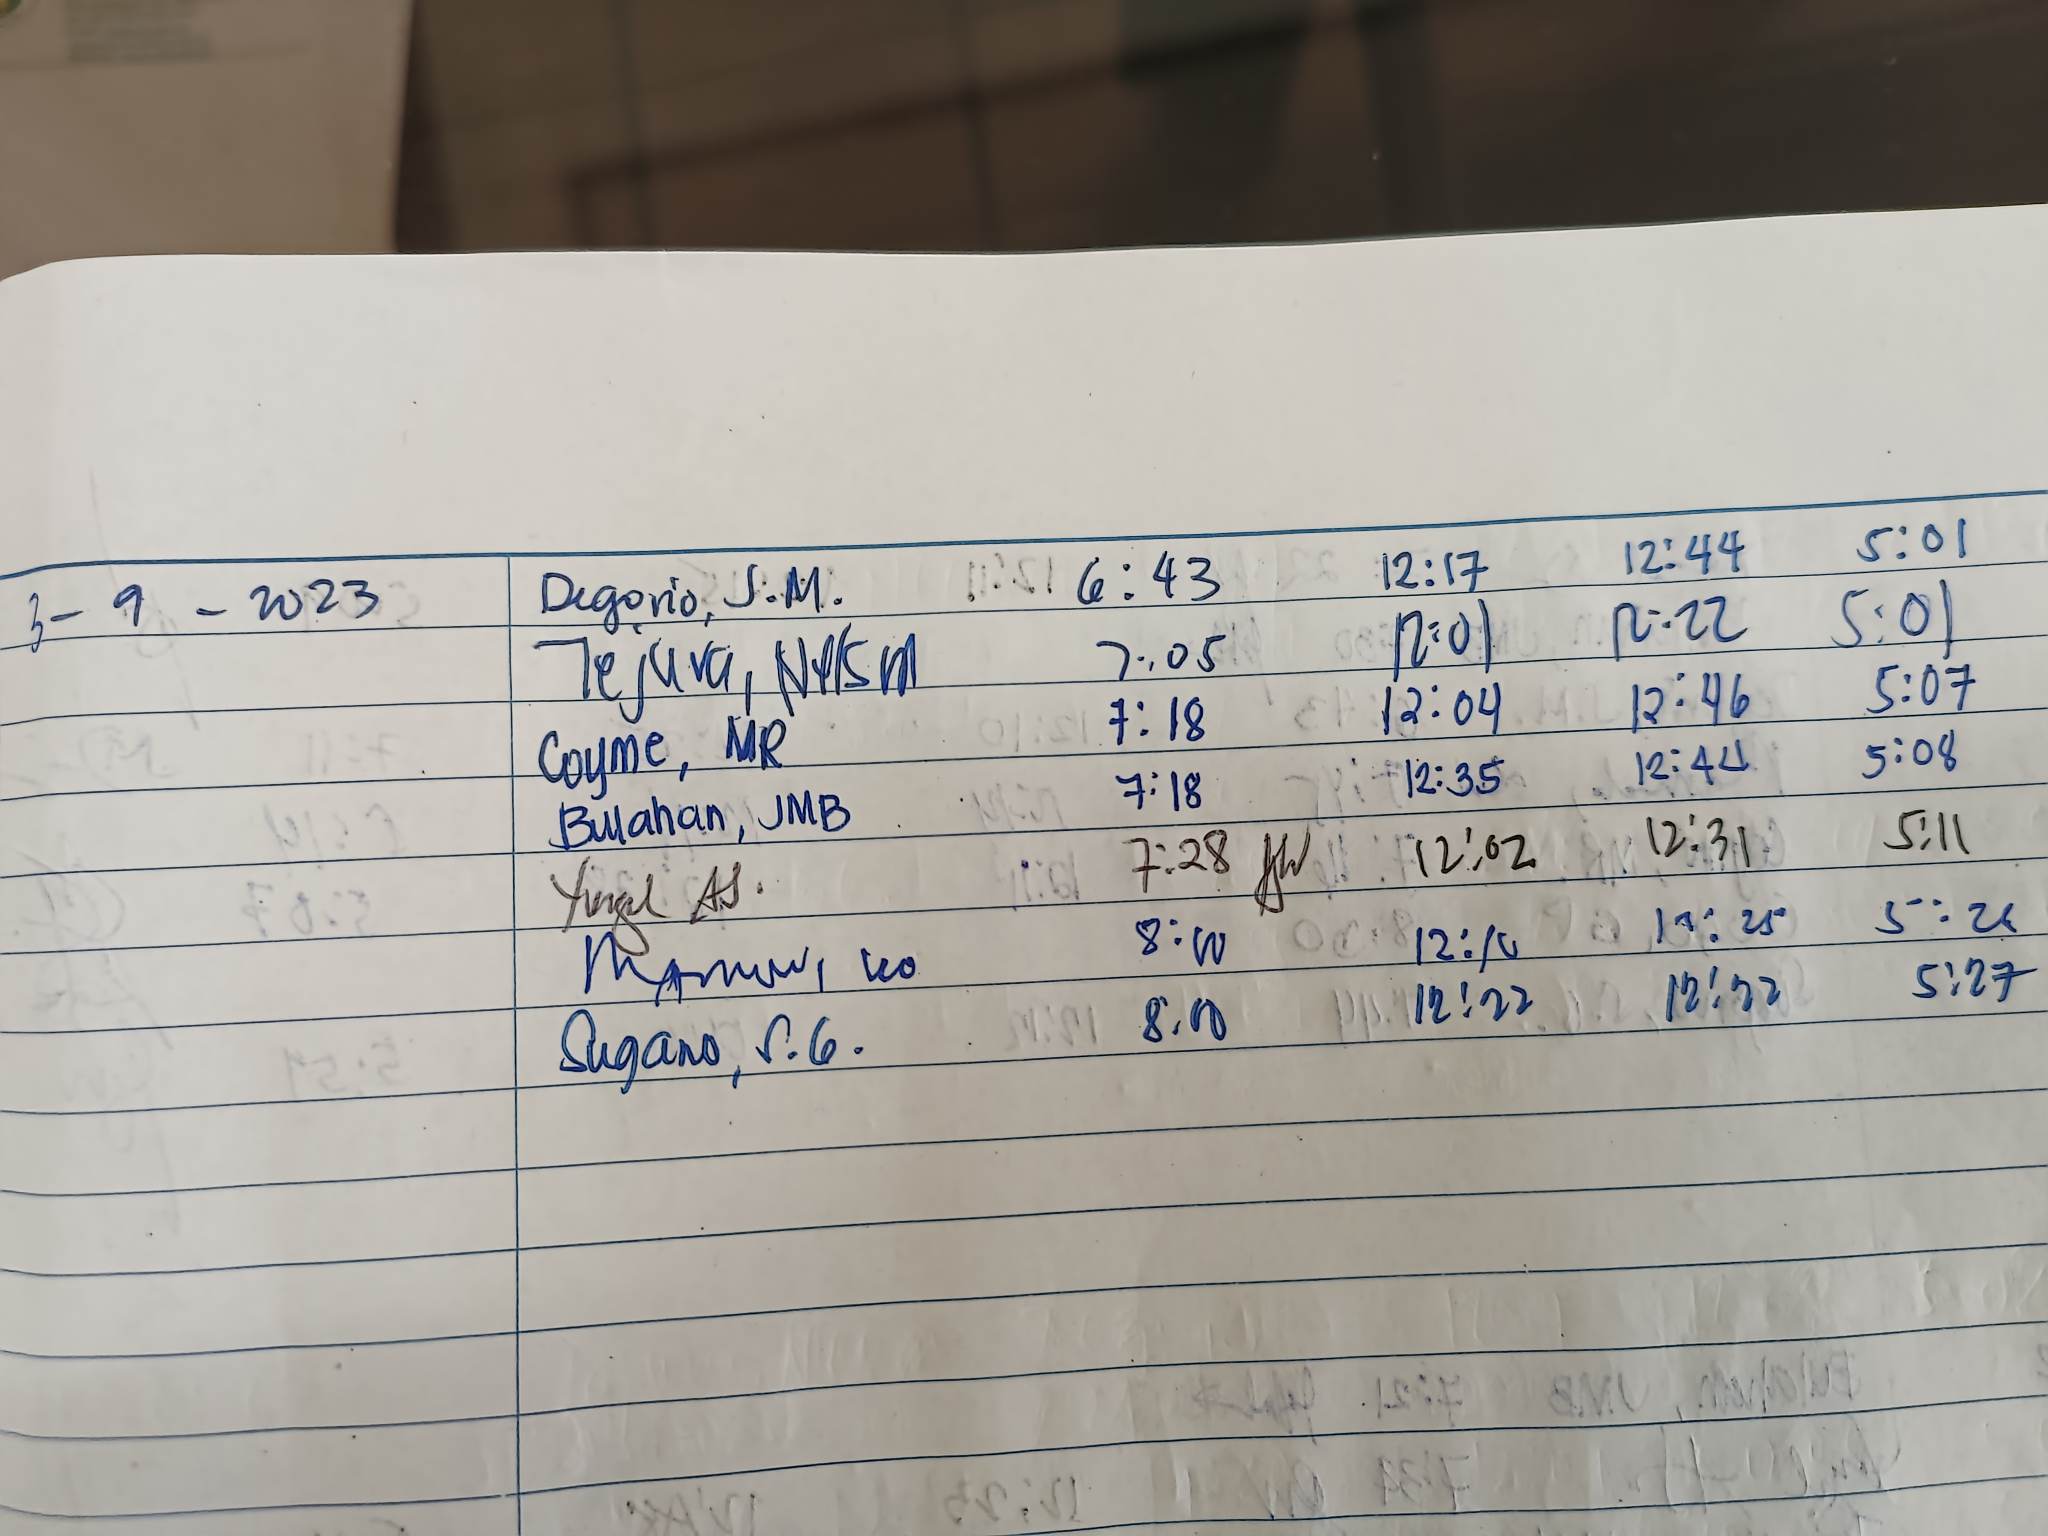 3-9-2023 Degorio, S.M. 6:43 12:17 12:44 5:01
Tejura, 7:05 12:01 12:22 5:01
Coyme, MR 7:18 12:04 12:46 5:07
Bulahan, JMB 7:18 12:35 12:44 5:08
AS. 7:28 12:02 12:31 5:11
8:00 12:10 5:26
Sugano, S.G. 8:00 12:22 12:22 5:27